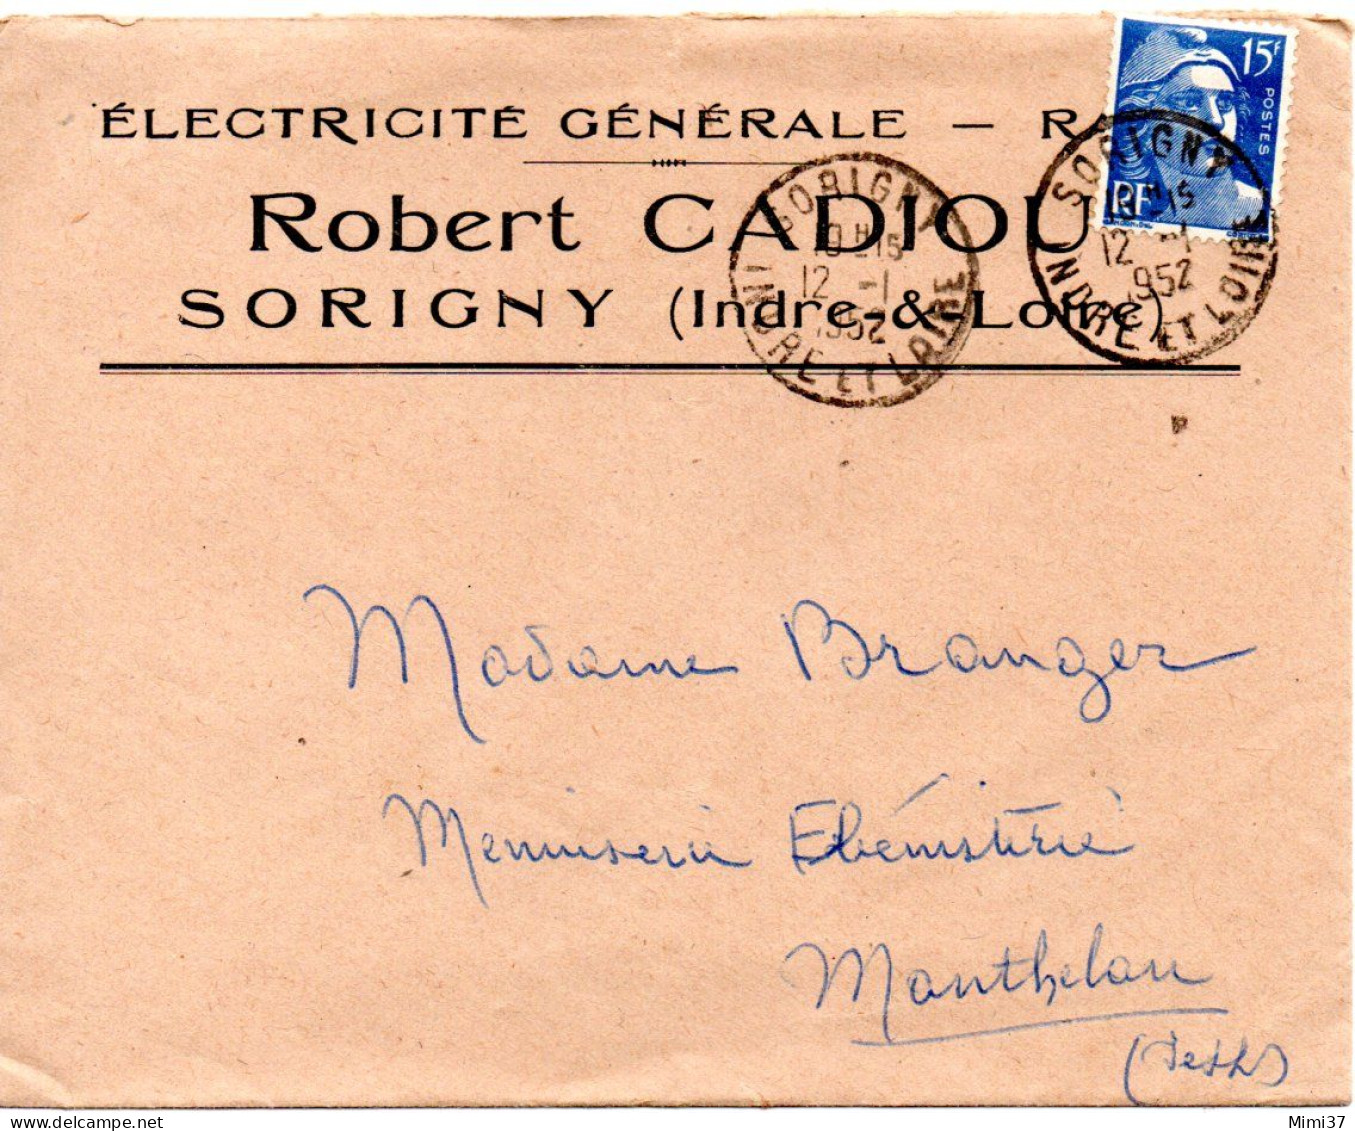 ÉLECTRICITÉ GÉNÉRALE — R
Robert CADIOU
SORIGNY (Indre-&-Loire)
15F
POSTES
RF
SORIGNY
10 H 15
12 -1
1952
INDRE ET LOIRE
SORIGNY
10 H 15
12 -1
1952
INDRE ET LOIRE
Madame Branger
Menuiserie Ébénisterie
Manthelan
Mimi37